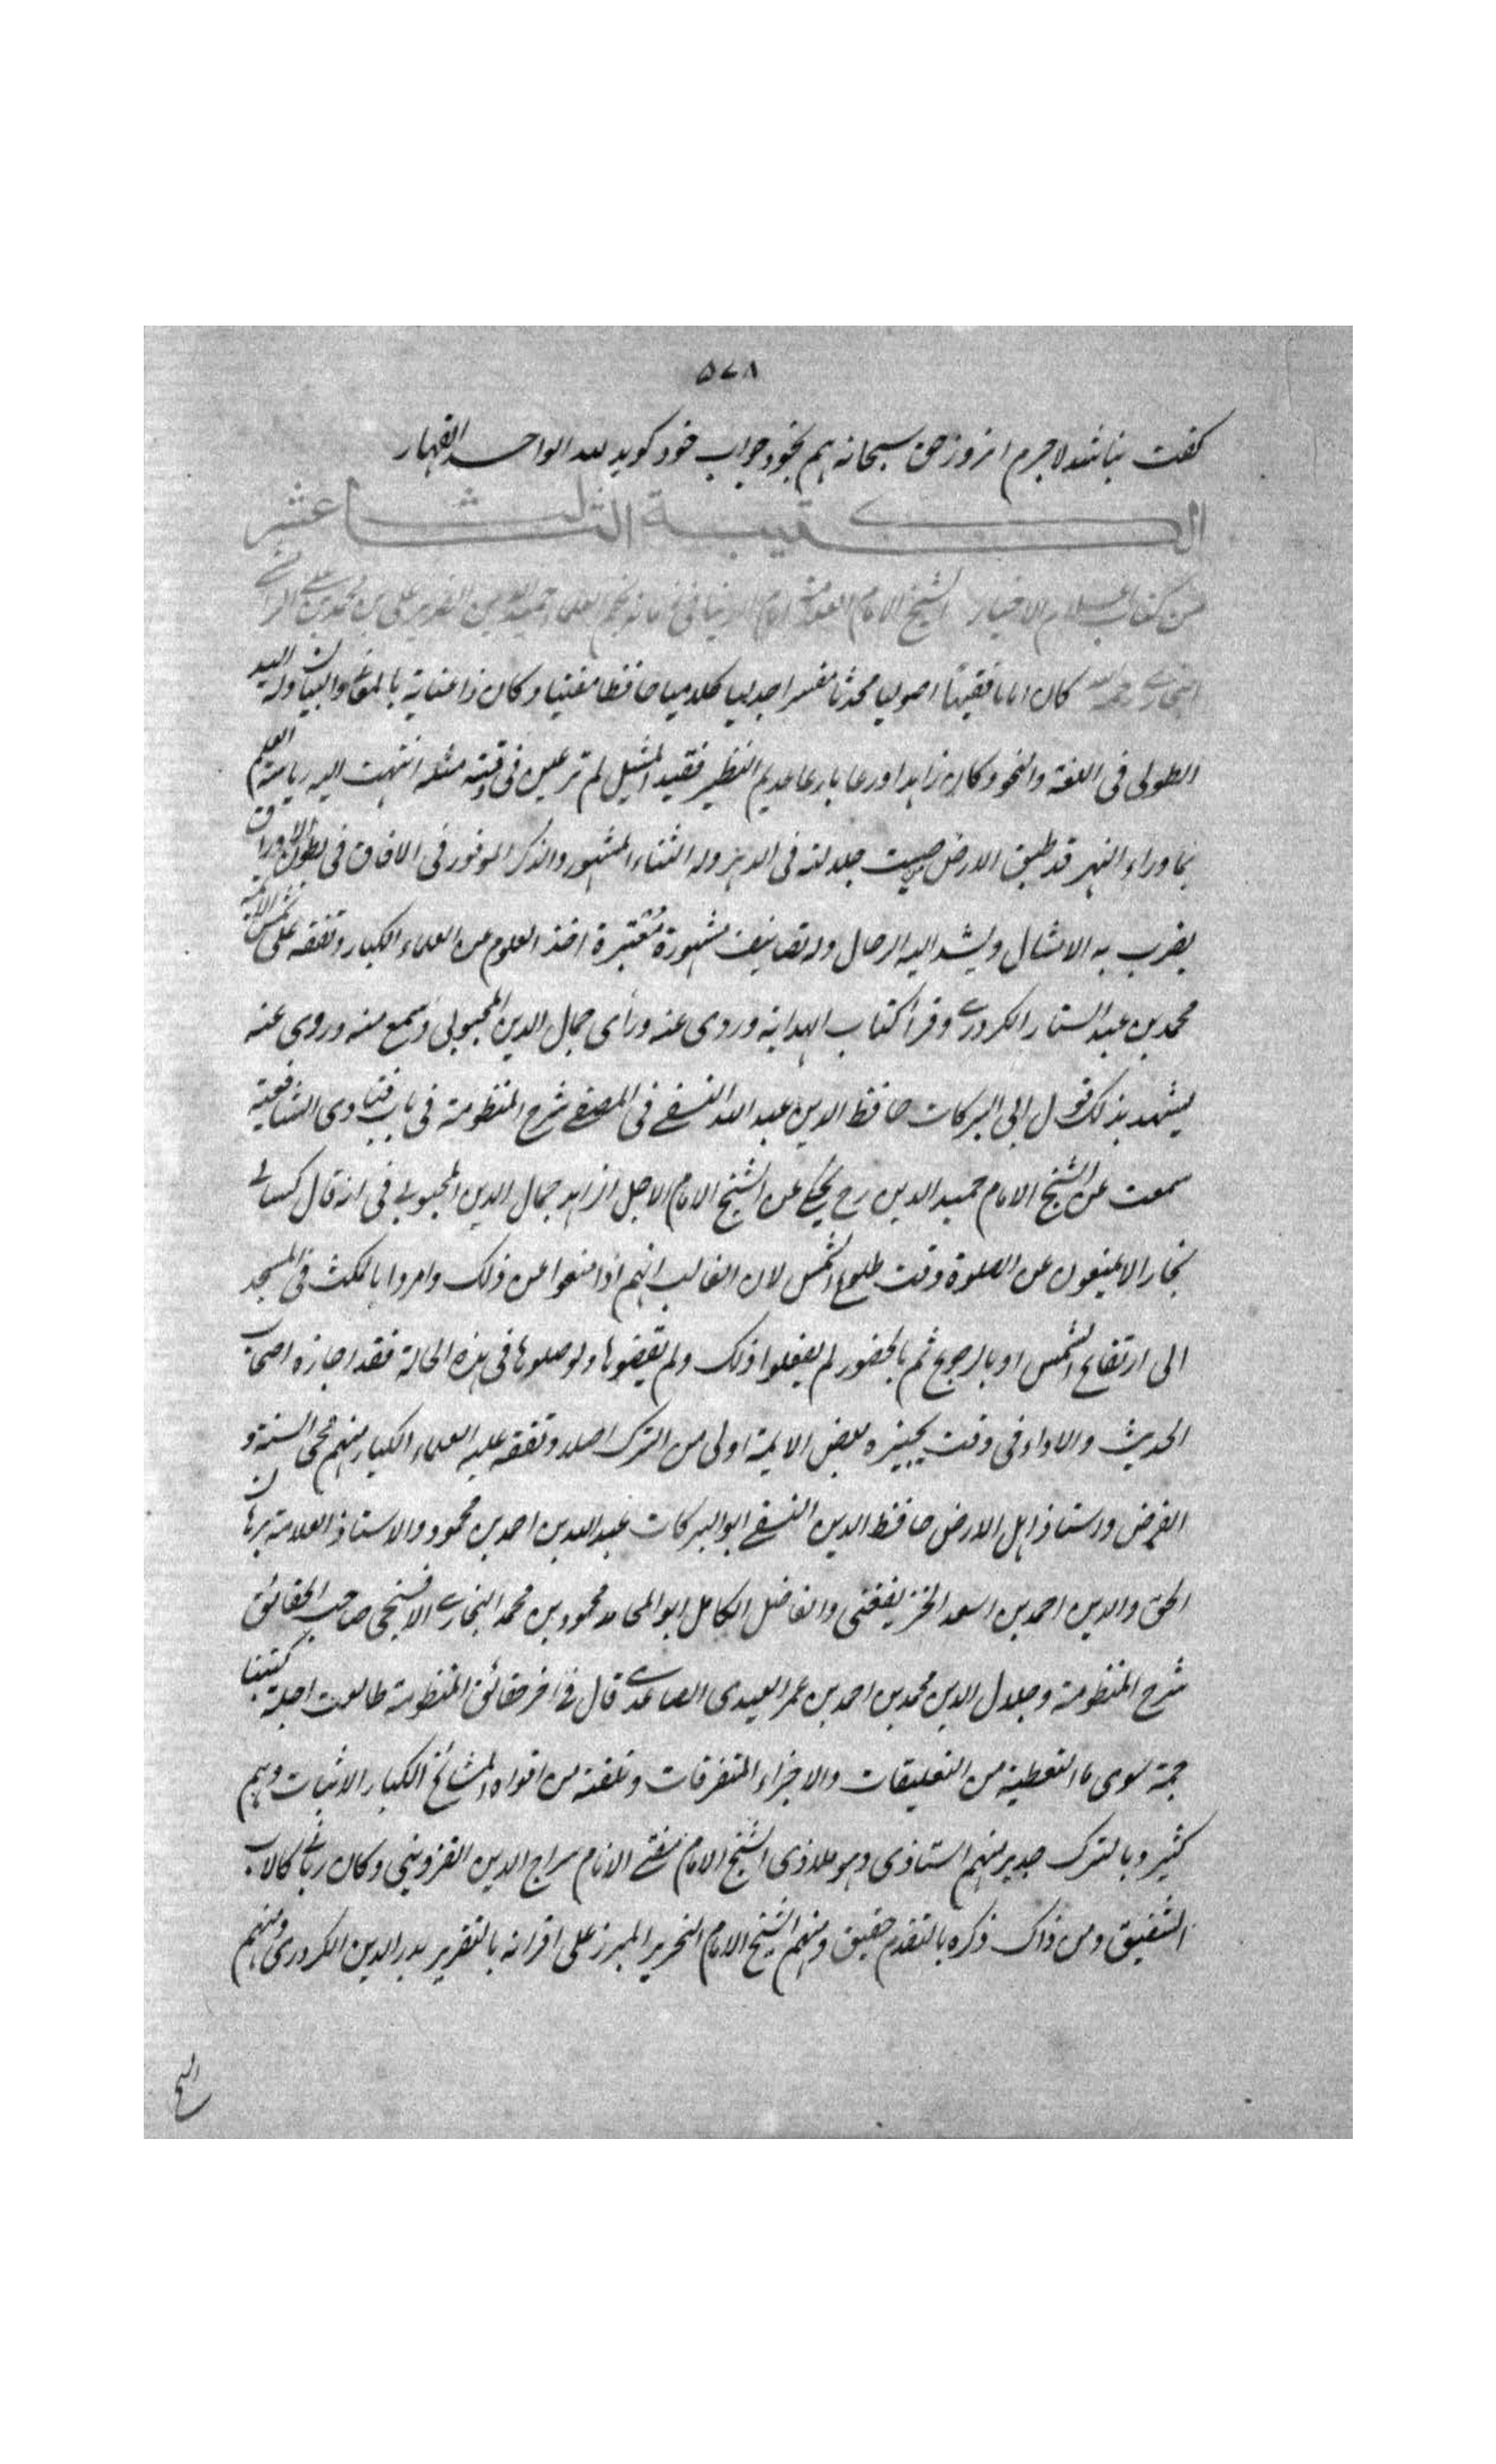 ۵۷۸
کفت نباشد لاجرم انروز حق سبحانه هم بخود جواب خود کوید لله الواحد القهار
الكتيبة الثالث عشر
من كتائب اعلام الاخيار الشيخ الامام العلامة امام الدنيا فى زمانه نجم العلماء حميد الدين الضرير على بن محمد بن على الرامشى
البخارى رحمه الله كان اماما فقيها اصوليا محدثا مفسرا جدليا كلاميا حافظا مفتيا وكان ذا عناية بالمعانى والبيان وله اليد
الطولى فى اللغة والنحو وكان زاهدا ورعا بارعا عديم النظير فقيد المثيل لم تر عين فى وقته مثله انتهت اليه رياسة العلم
بماوراء النهر قد طبق الارض صيت جلالته فى الدهر وله الثناء المشهور والذكر الموفور فى الافاق فى بطون الاوراق
يضرب به الامثال ويشد اليه الرحال وله تصانيف مشهورة معتبرة اخذ العلوم عن العلماء الكبار وتفقه على شمس الائمة
محمد بن عبد الستار الكردرى وقرأ كتاب الهداية وروى عنه ورأى جمال الدين المحبوبى وسمع منه وروى عنه
يشهد بذلك قول ابى البركات حافظ الدين عبد الله النسفى فى المصفى شرح المنظومة فى باب فتاوى الشافعية
سمعت عن الشيخ الامام حميد الدين رح يحكى عن الشيخ الامام الاجل الزاهد جمال الدين المحبوبى فى انه قال كسالى
بخارا لا يمنعون عن الصلوة وقت طلوع الشمس لان الغالب انهم اذا منعوا عن ذلك وامروا بالمكث فى المسجد
الى ارتفاع الشمس او بالرجوع ثم بالحضور لم يفعلوا ذلك ولم يقضوها ولو صلوها فى هذه الحالة فقد اجازه اصحاب
الحديث والاداء فى وقت يجيزه بعض الايمة اولى من الترك اصلا وتفقه عليه العلماء الكبار منهم محى السنة و
الفرض واستاذ اهل الارض حافظ الدين النسفى ابو البركات عبد الله بن احمد بن محمود والاستاذ العلامة برهان
الحق والدين احمد بن اسعد الخريفغنى والفاضل الكامل ابو المحامد محمود بن محمد البخارى الافسنجى صاحب الحقائق
شرح المنظومة وجلال الدين محمد بن احمد بن عمر العيدى الصاعدى قال فى اخر حقائق المنظومة طالعت اجلة كتبنا
جمة سوى ما التقطته من التعليقات والاجزاء المتفرقات وتلقفته من افواه المشائخ الكبار الاثبات وهم
كثير وبالترك جدير منهم استاذى وهو ملاذى الشيخ الامام مفتى الانام سراج الدين القزوينى وكان ربانى كالاب
الشفيق ومن ذاك ذكره بالتقدم حقيق ومنهم الشيخ الامام النحرير المبرز على اقرانه بالتقرير بدر الدين الكردرى ومنهم